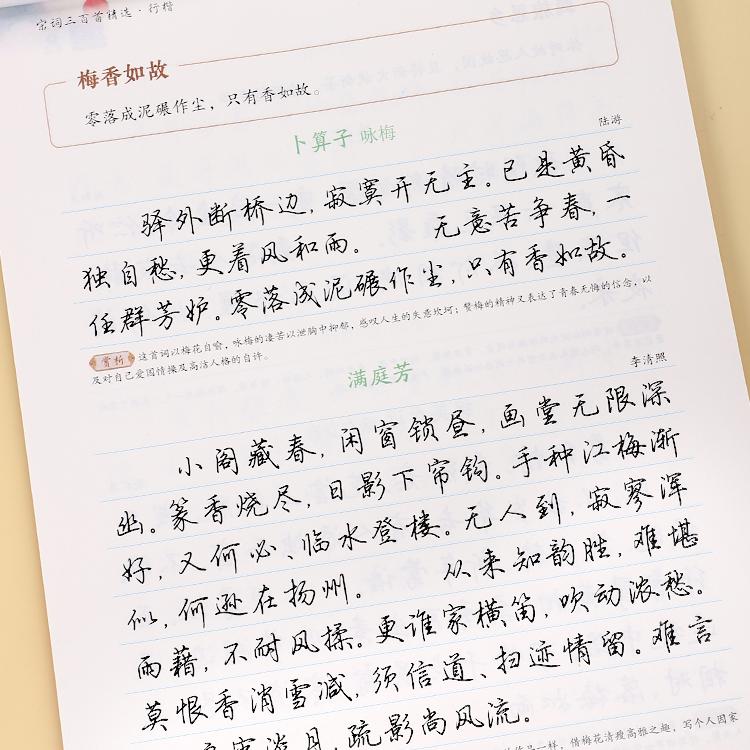 宋词三百首精选·行楷
梅香如故
零落成泥碾作尘，只有香如故。
卜算子 咏梅
陆游
驿外断桥边，寂寞开无主。已是黄昏
独自愁，更着风和雨。 无意苦争春，一
任群芳妒。零落成泥碾作尘，只有香如故。
赏析 这首词以梅花自喻，咏梅的凄苦以泄胸中抑郁，感叹人生的失意坎坷；赞梅的精神又表达了青春无悔的信念，以
及对自己爱国情操及高洁人格的自许。
满庭芳
李清照
小阁藏春，闲窗锁昼，画堂无限深
幽。篆香烧尽，日影下帘钩。手种江梅渐
好，又何必、临水登楼。无人到，寂寥浑
似，何逊在扬州。 从来知韵胜，难堪
雨藉，不耐风揉。更谁家横笛，吹动浓愁。
莫恨香消雪减，须信道、扫迹情留。难言
淡月，疏影尚风流。
一样，借梅花清瘦高雅之趣，写个人因家